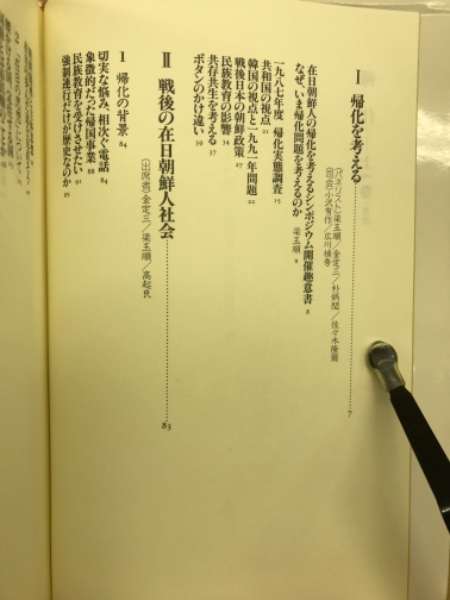 I 帰化を考える……7
〈パネリスト〉梁玉順／金定三／朴炳閏／佐々木隆爾
〈司会〉小沢有作／広川禎秀
在日朝鮮人の帰化を考えるシンポジウム開催趣意書 8
なぜ、いま帰化問題を考えるのか 梁玉順 9
一九八七年度 帰化実態調査 15
共和国の視点 21
韓国の視点と一九九一年問題 22
戦後日本の朝鮮政策 27
民族教育の影響 34
共存共生を考える 37
ボタンのかけ違い 39
II 戦後の在日朝鮮人社会……83
〈出席者〉金定三／梁玉順／高起良
1 帰化の背景 84
切実な悩み、相次ぐ電話 84
象徴的だった帰国事業 88
民族教育を受けさせたい 91
強制連行だけが歴史なのか 95